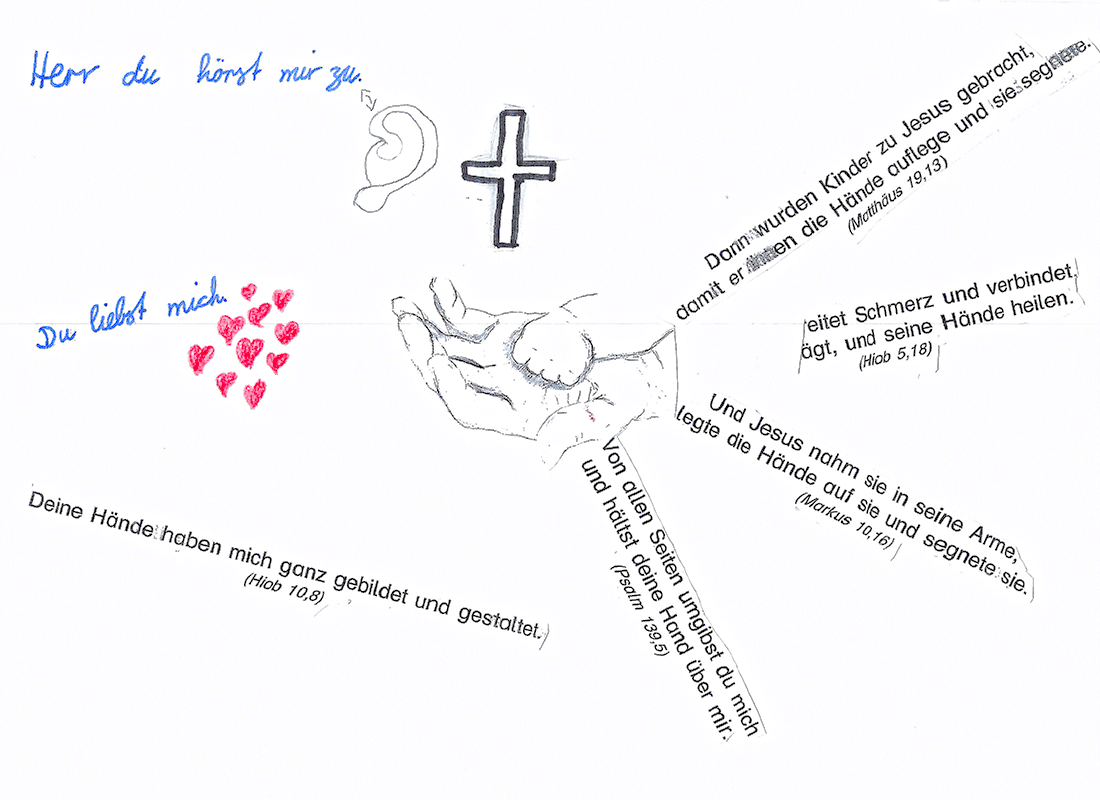 Herr du hörst mir zu.
Du liebst mich.
Dann wurden Kinder zu Jesus gebracht,
damit er ihnen die Hände auflege und sie segnete.
(Matthäus 19,13)
eitet Schmerz und verbindet,
ägt, und seine Hände heilen.
(Hiob 5,18)
Und Jesus nahm sie in seine Arme,
legte die Hände auf sie und segnete sie.
(Markus 10,16)
Von allen Seiten umgibst du mich
und hältst deine Hand über mir.
(Psalm 139,5)
Deine Hände haben mich ganz gebildet und gestaltet.
(Hiob 10,8)